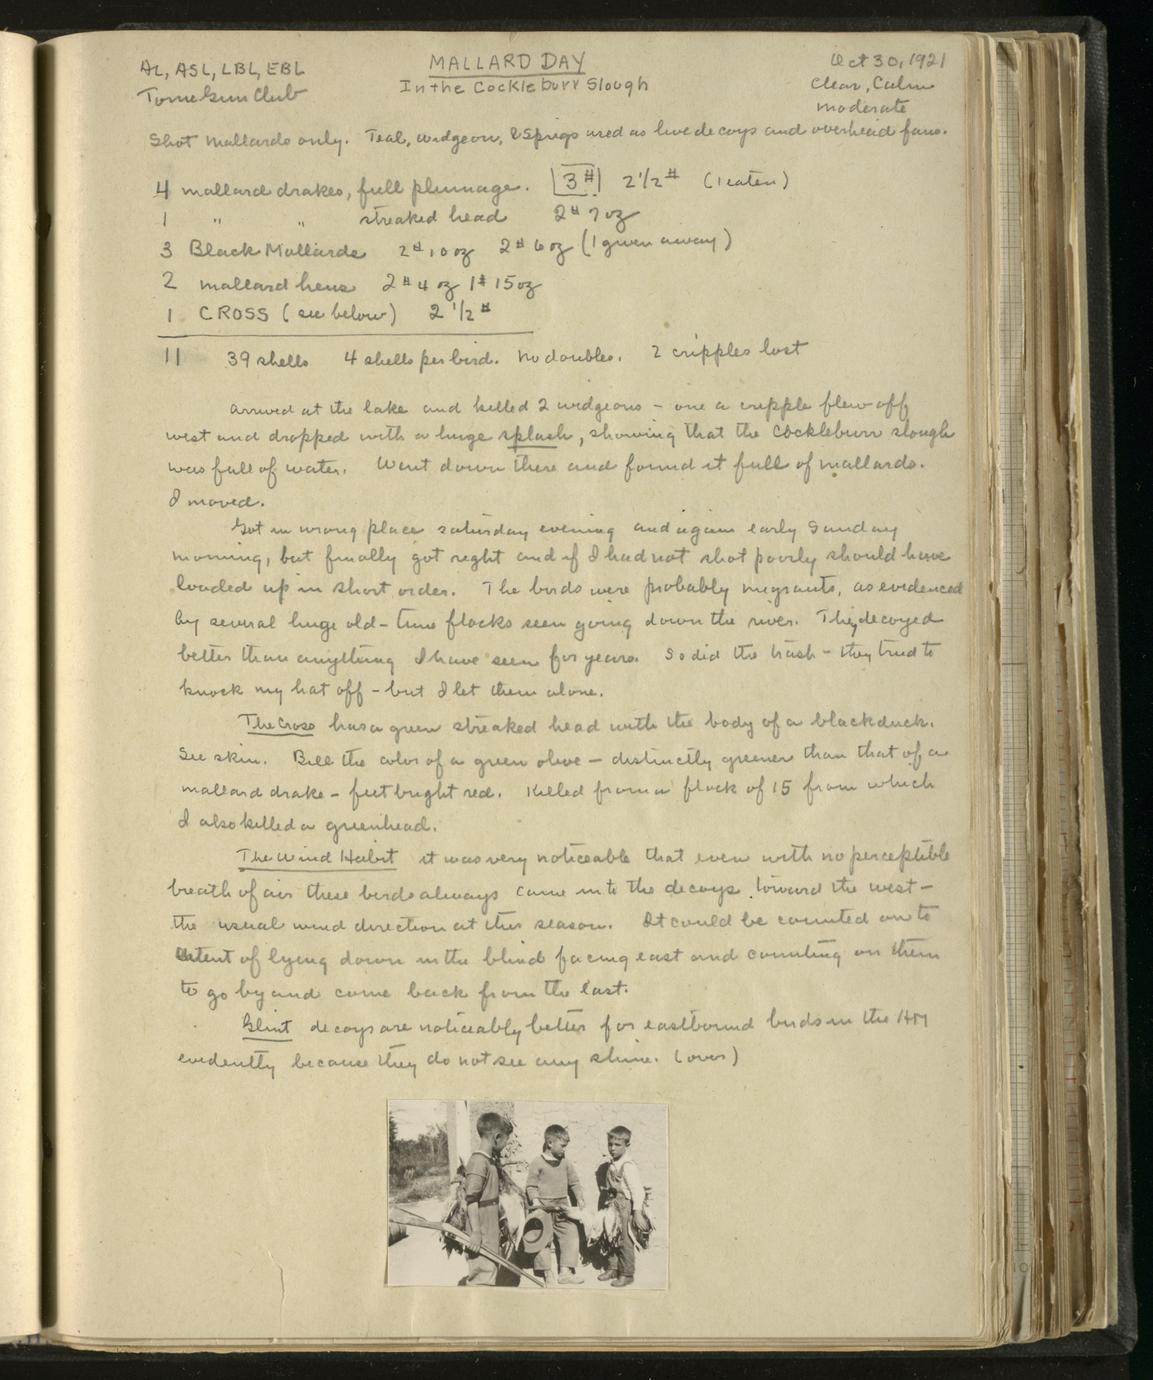 AL, ASL, LBL, EBL
Tome Gun Club
MALLARD DAY
In the Cockleburr Slough
Oct 30, 1921
Clear, Calm
moderate
Shot mallards only. Teal, widgeon, & Sprigs used as live decoys and overhead fans.
4 mallard drakes, full plumage. 3# 2 1/2# (1 eaten)
1 " " streaked head 2# 7 oz
3 Black Mallards 2# 10 oz 2# 6 oz (1 given away)
2 mallard hens 2# 4 oz 1# 15 oz
1 CROSS (see below) 2 1/2#
11 39 shells 4 shells per bird. No doubles. 2 cripples lost
Arrived at the lake and killed 2 widgeons - one a cripple flew off
west and dropped with a huge splash, showing that the Cockleburr slough
was full of water. Went down there and found it full of mallards.
I moved.
Got in wrong place Saturday evening and again early Sunday
morning, but finally got right and if I had not shot poorly should have
loaded up in short order. The birds were probably migrants, as evidenced
by several huge old-time flocks seen going down the river. They decoyed
better than anything I have seen for years. So did the trash - they tried to
knock my hat off - but I let them alone.
The Cross has a green streaked head with the body of a black duck.
See skin. Bill the color of a green olive - distinctly greener than that of a
mallard drake - feet bright red. Killed from a flock of 15 from which
I also killed a greenhead.
The Wind Habit it was very noticeable that even with no perceptible
breath of air these birds always came into the decoys toward the west -
the usual wind direction at this season. It could be counted on to
extent of lying down in the blind facing east and counting on them
to go by and come back from the east.
Glint decoys are noticeably better for eastbound birds in the
evidently because they do not see any shine. (over)